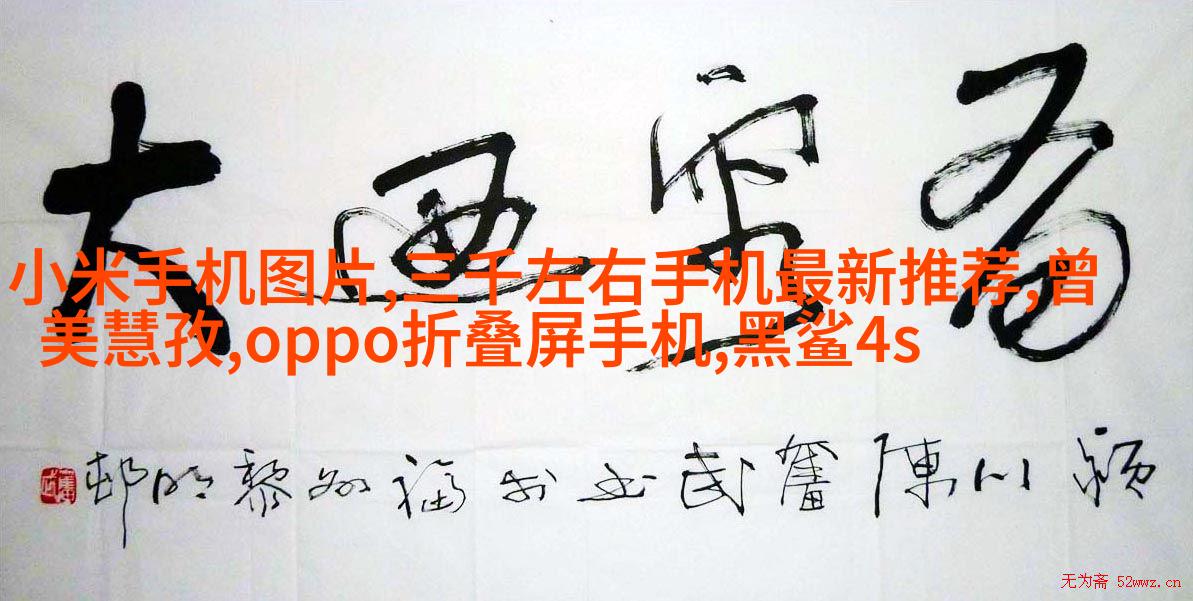 有容迺大
小米手机图片,三千左右手机最新推荐,曾
美慧孜,oppo折叠屏手机,黑鲨4s
颖川陳奮武书于福州黎明邨
无为斋 52wwz.cn